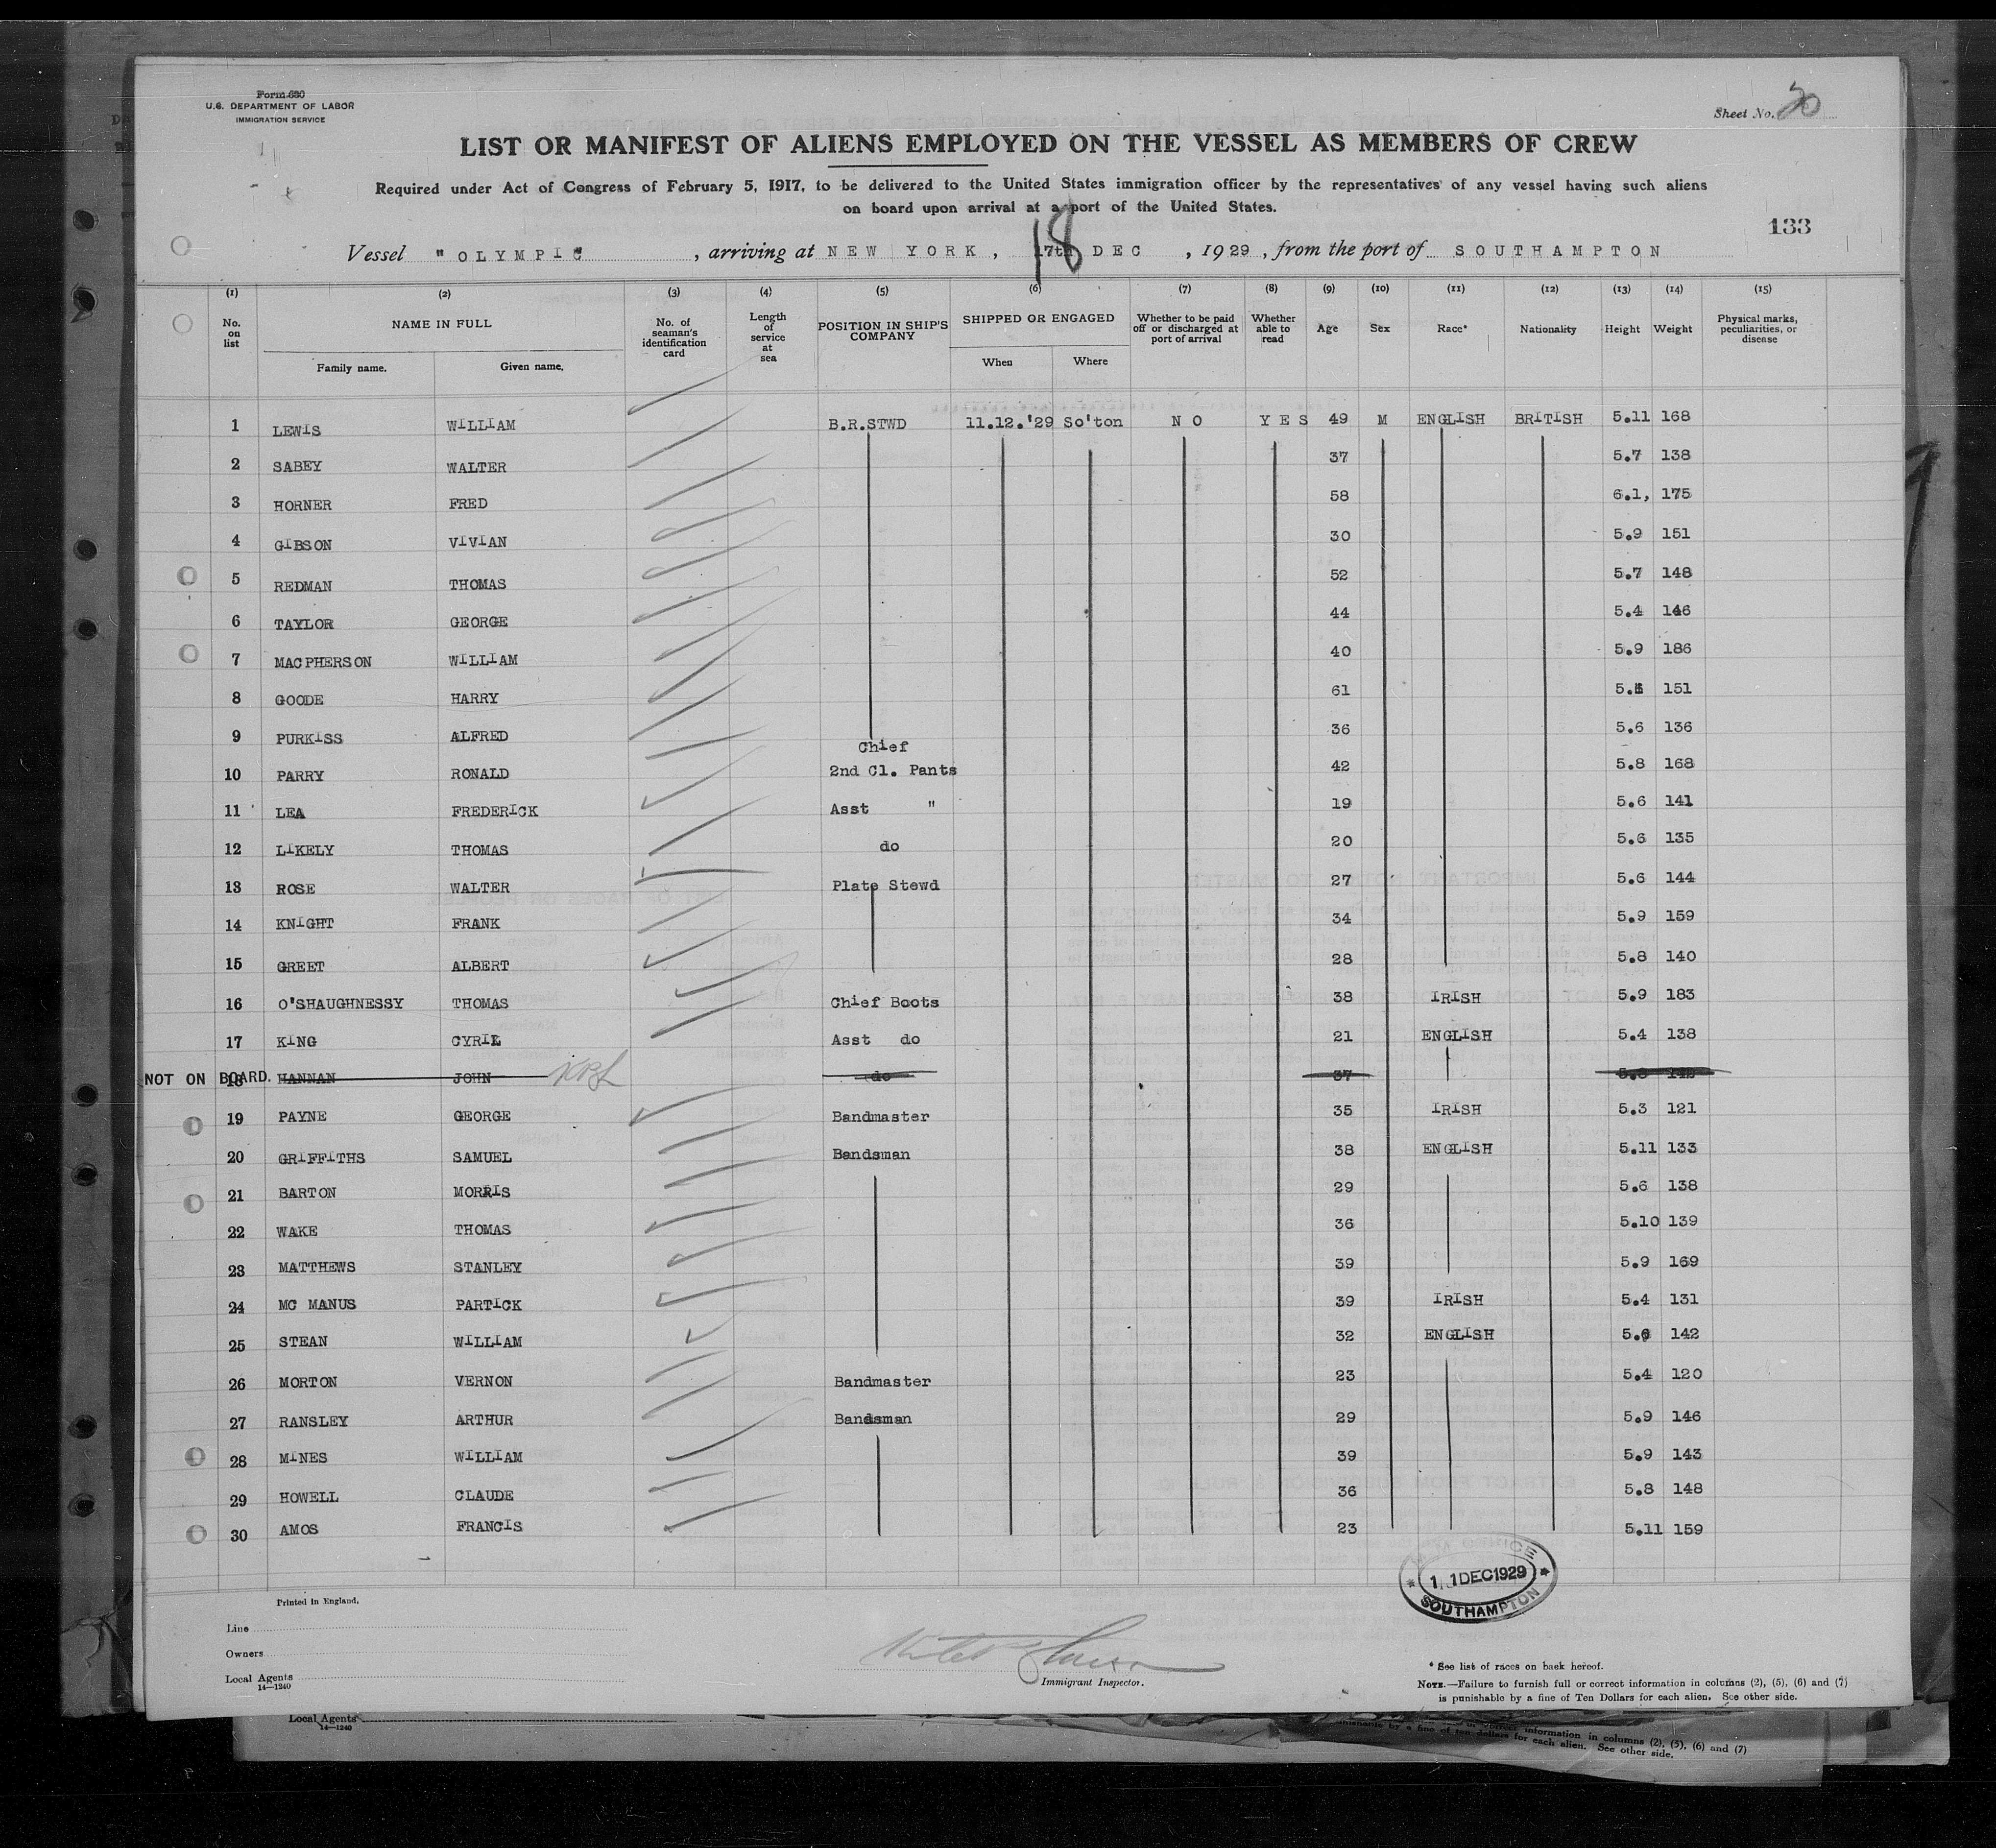 Form 680
U.S. DEPARTMENT OF LABOR
IMMIGRATION SERVICE
Sheet No. 20
LIST OR MANIFEST OF ALIENS EMPLOYED ON THE VESSEL AS MEMBERS OF CREW
Required under Act of Congress of February 5, 1917, to be delivered to the United States immigration officer by the representatives of any vessel having such aliens
on board upon arrival at a port of the United States.
133
Vessel "OLYMPIC", arriving at NEW YORK, 17th 18 DEC, 1929, from the port of SOUTHAMPTON
(1) (2) (3) (4) (5) (6) (7) (8) (9) (10) (11) (12) (13) (14) (15)
No. on list NAME IN FULL Family name. Given name. No. of seaman's identification card Length of service at sea POSITION IN SHIP'S COMPANY SHIPPED OR ENGAGED When Where Whether to be paid off or discharged at port of arrival Whether able to read Age Sex Race* Nationality Height Weight Physical marks, peculiarities, or disease
1 LEWIS WILLIAM B.R.STWD 11.12.'29 So'ton NO YES 49 M ENGLISH BRITISH 5.11 168
2 SABEY WALTER 37 5.7 138
3 HORNER FRED 58 6.1, 175
4 GIBSON VIVIAN 30 5.9 151
5 REDMAN THOMAS 52 5.7 148
6 TAYLOR GEORGE 44 5.4 146
7 MACPHERSON WILLIAM 40 5.9 186
8 GOODE HARRY 61 151
9 PURKISS ALFRED 36 5.6 136
Chief
10 PARRY RONALD 2nd Cl. Pants 42 5.8 168
11 LEA FREDERICK Asst " 19 5.6 141
12 LIKELY THOMAS do 20 5.6 135
13 ROSE WALTER Plate Stewd 27 5.6 144
14 KNIGHT FRANK 34 5.9 159
15 GREET ALBERT 28 5.8 140
16 O'SHAUGHNESSY THOMAS Chief Boots 38 IRISH 5.9 183
17 KING CYRIL Asst do 21 ENGLISH 5.4 138
NOT ON BOARD. 18 HANNAN JOHN do 37
19 PAYNE GEORGE Bandmaster 35 IRISH 5.3 121
20 GRIFFITHS SAMUEL Bandsman 38 ENGLISH 5.11 133
21 BARTON MORRIS 29 5.6 138
22 WAKE THOMAS 36 5.10 139
23 MATTHEWS STANLEY 39 5.9 169
24 MC MANUS PARTICK 39 IRISH 5.4 131
25 STEAN WILLIAM 32 ENGLISH 142
26 MORTON VERNON Bandmaster 23 5.4 120
27 RANSLEY ARTHUR Bandsman 29 5.9 146
28 MINES WILLIAM 39 5.9 143
29 HOWELL CLAUDE 36 5.8 148
30 AMOS FRANCIS 23 5.11 159
11 DEC 1929
SOUTHAMPTON
Printed in England.
Line
Owners
Local Agents
14—1240
Immigrant Inspector.
* See list of races on back hereof.
NOTE.—Failure to furnish full or correct information in columns (2), (5), (6) and (7)
is punishable by a fine of Ten Dollars for each alien. See other side.
Local Agents
14—1240
information in columns (2), (5), (6) and (7)
punishable by a fine of ten dollars for each alien. See other side.